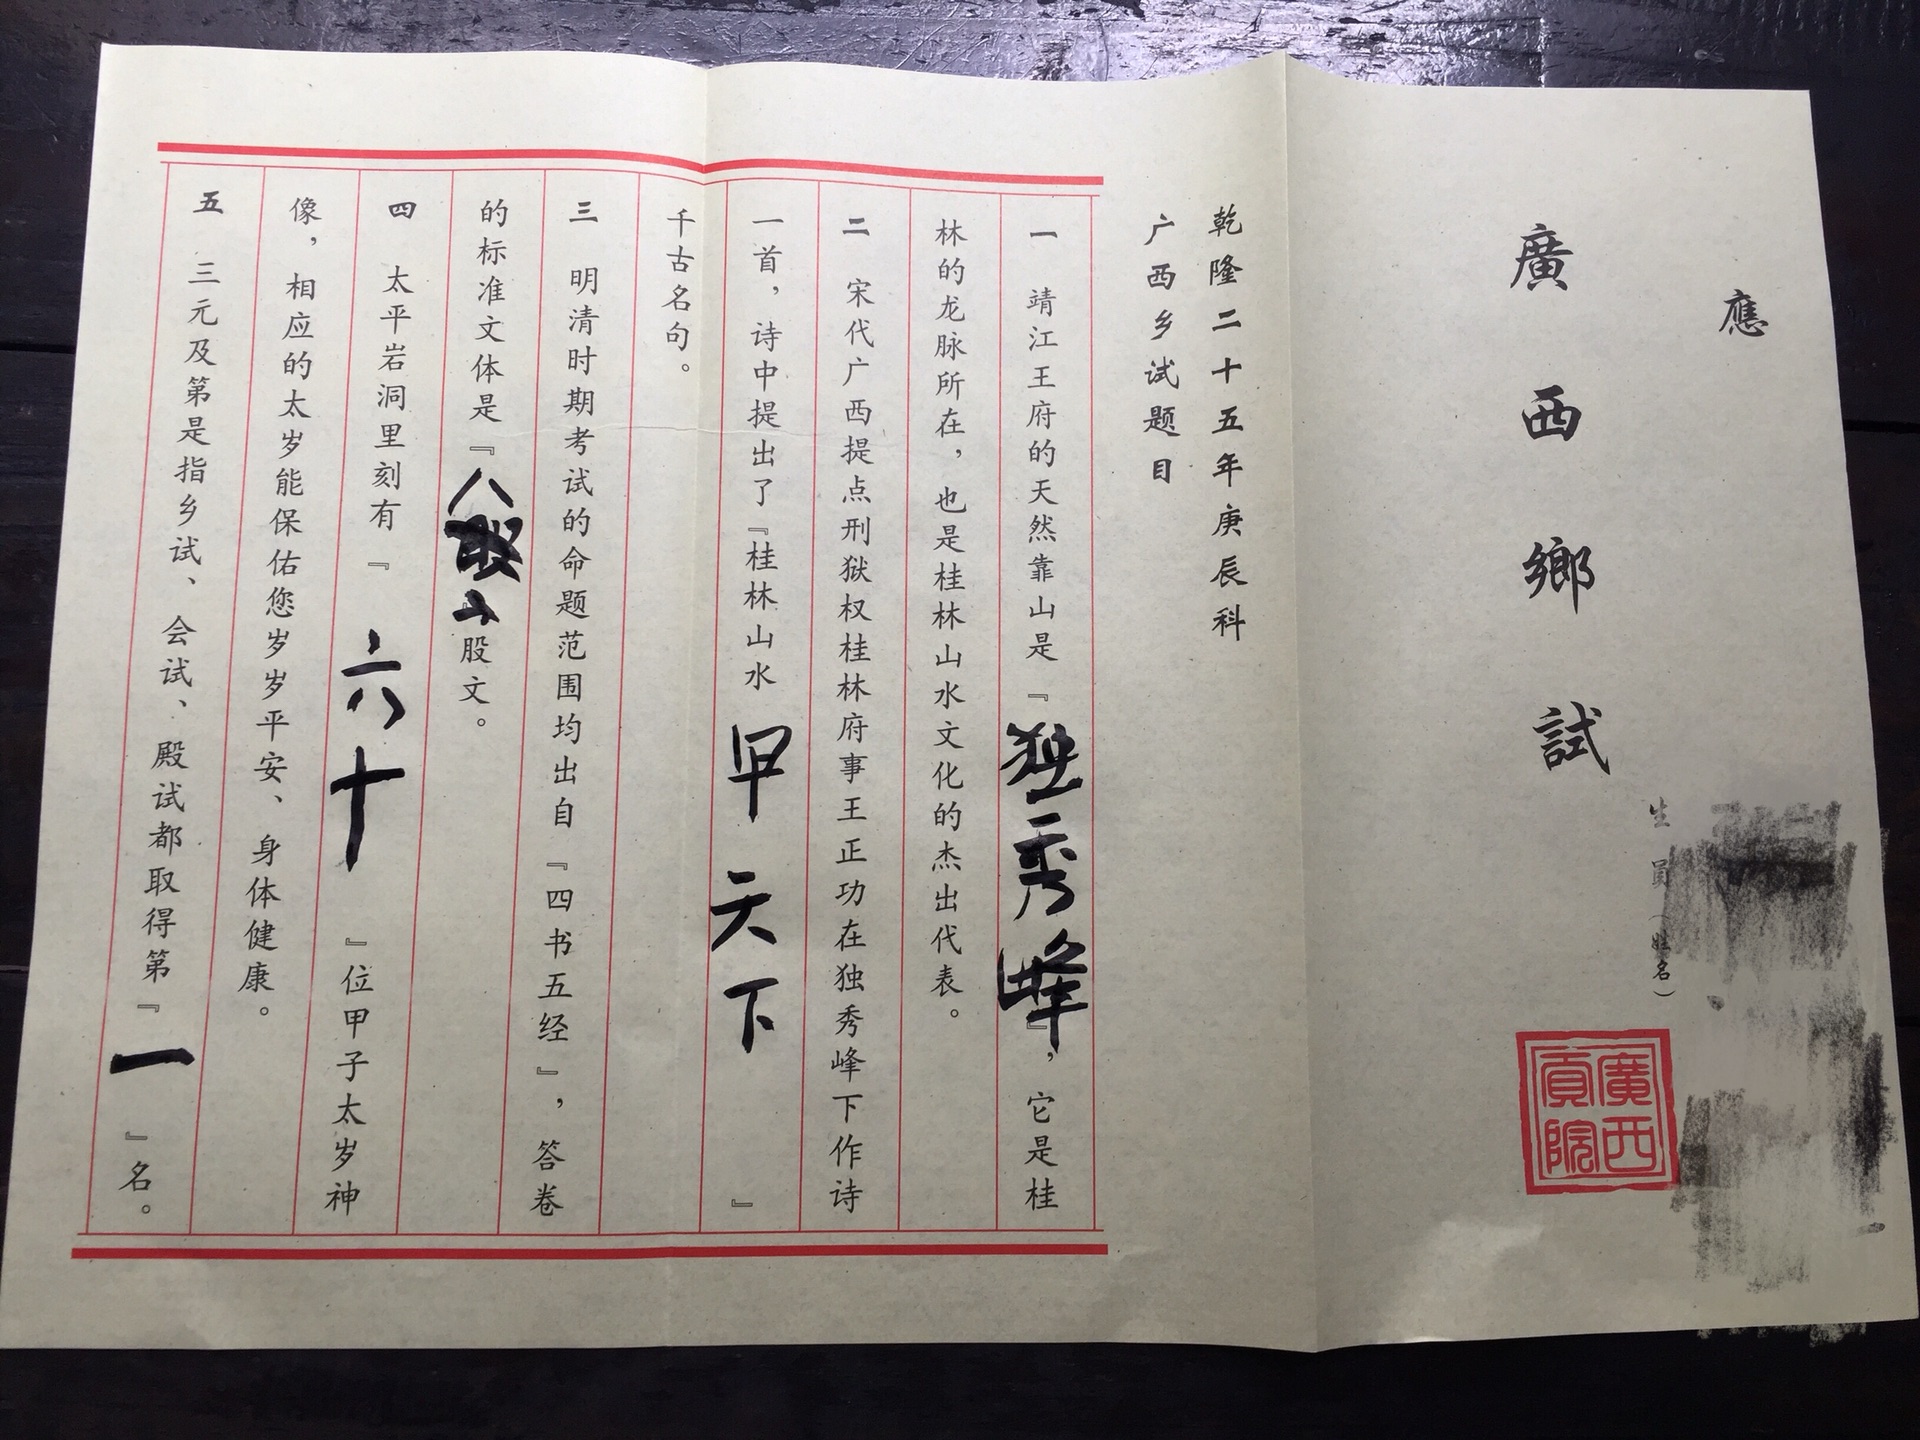 應
廣西鄉試
生員（姓名）
廣西貢院
乾隆二十五年庚辰科
广西乡试题目
一 靖江王府的天然靠山是『独秀峰』，它是桂
林的龙脉所在，也是桂林山水文化的杰出代表。
二 宋代广西提点刑狱权桂林府事王正功在独秀峰下作诗
一首，诗中提出了『桂林山水甲天下』
千古名句。
三 明清时期考试的命题范围均出自『四书五经』，答卷
的标准文体是『八股文。
四 太平岩洞里刻有『六十』位甲子太岁神
像，相应的太岁能保佑您岁岁平安、身体健康。
五 三元及第是指乡试、会试、殿试都取得第『一』名。